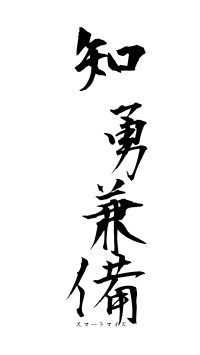 知勇兼備
スマートマイズ